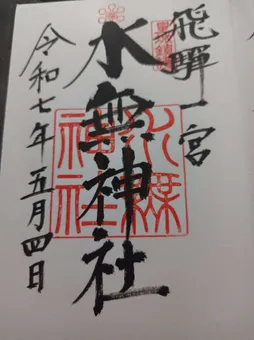 飛騨一宮
水無神社
令和七年五月四日
水無神社